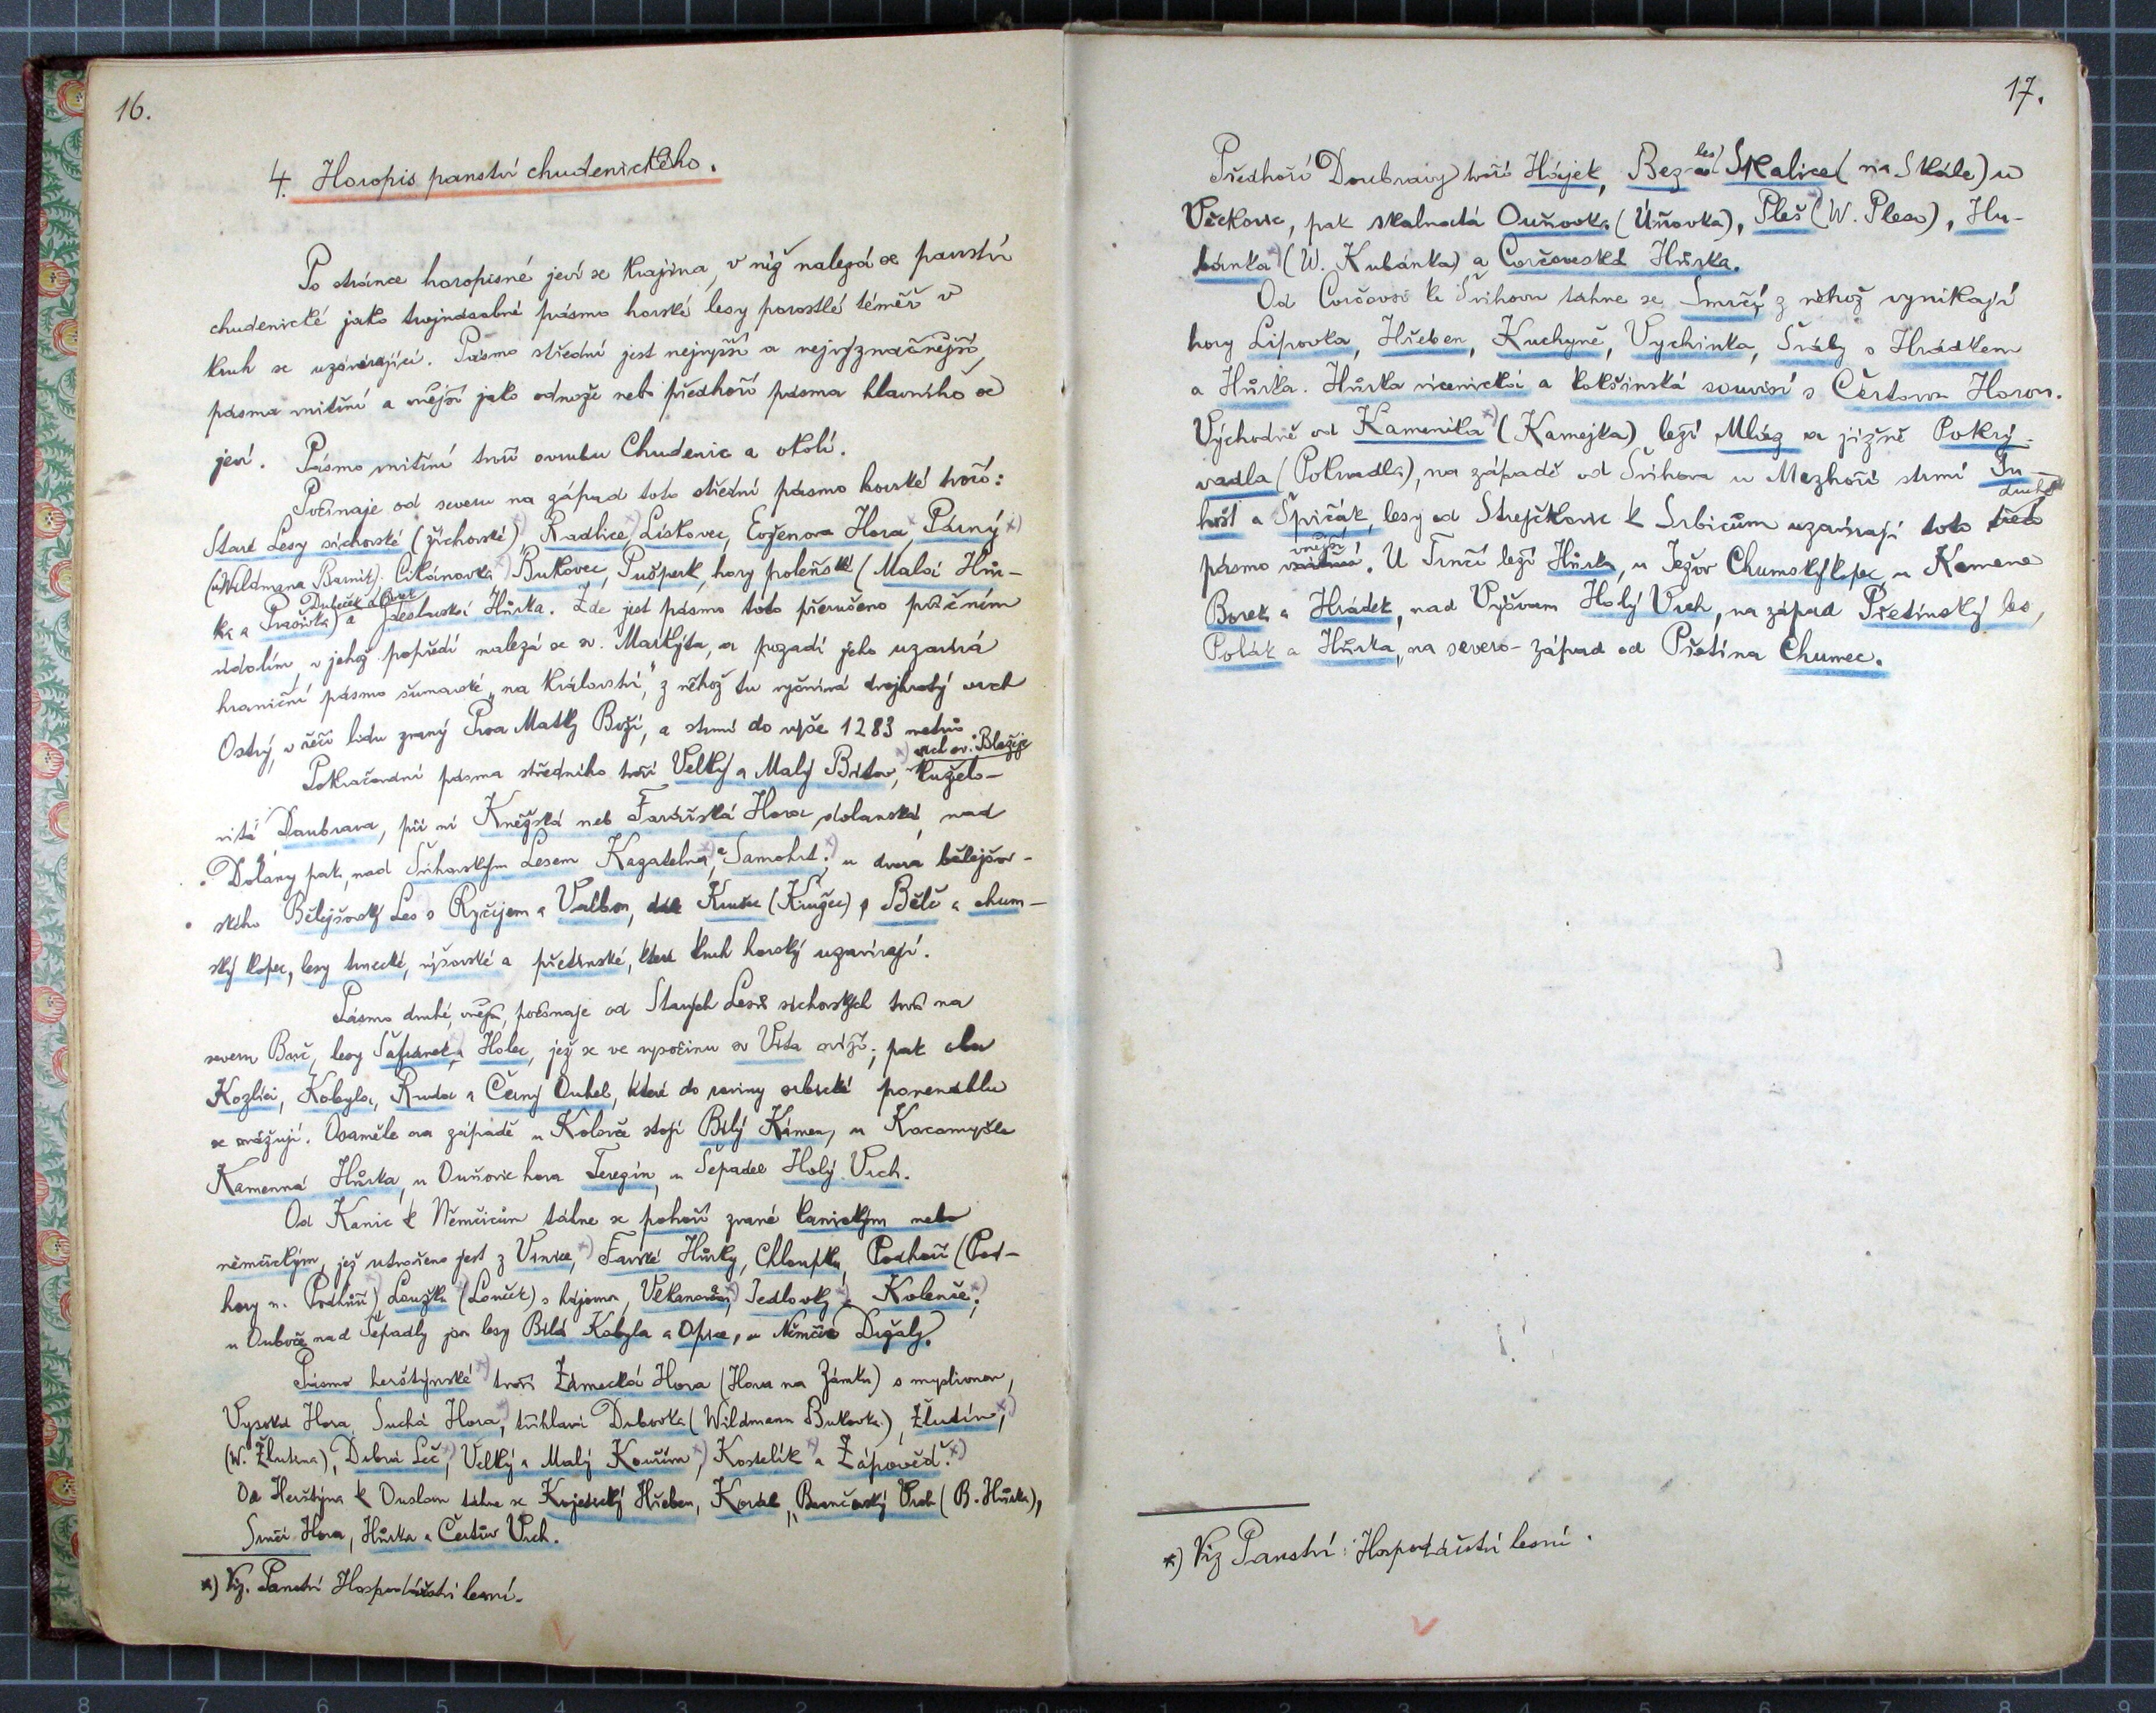 16.
4. Horopis panství chudenického.
Po stránce horopisné jeví se krajina, v níž nalezá se panství
chudenické jako trojnásobné pásmo horské lesy porostlé téměř v
kruh se uzavírající. Pásmo střední jest nejvyšší a nejvýznačnější,
pásma vnitřní a vnější jako odnože neb předhoří pásma hlavního se
jeví. Pásmo vnitřní tvoří ovrubu Chudenic a okolí.
Počínaje od severu na západ toto střední pásmo horské tvoří:
Staré Lesy sichovské (žichovské) Radlice x) Lískovec, Evženova Hora x) Párný x)
(u Wildmana Barnik). Cikánovka x) Bukovec, Pušperk, hory poleňské (Malá Hůr-
Dubeček a Borek
ka a Prašivka) a Hůrka. Zde jest pásmo toto přerušeno příčním
údolím, v jehož popředí nalezá se sv. Markyta, a pozadí jeho uzavírá
hraniční pásmo šumavské „na Království", z něhož tu vyčnívá dvojhrotý vrch
Ostrý, v řeči lidu zvaný Prsa Matky Boží, a strmí do výše 1283 metrů
x) vrch sv. Blažeje
Pokračování pásma středního tvoří Velký a Malý Bítov, kuželo-
vitá Doubrava, při ní Kněžská neb Farářská Hora dolanská, nad
Dolany pak, nad Švihovským Lesem Kazatelna x) a Samohrt; x) u dvora bělejšov-
ského Bělejšovský Les s Ryčijem a Valbou, dále Krušec (Kružec), Běleč a chum-
ský kopec, lesy trnecké, výšovské a přetínské, které kruh horský uzavírají.
Pásmo druhé, vnější, počínaje od Starých Lesů sichovských tvoří na
severu Barč, lesy Šafránek a Holec, jež se ve vysočinu sv. Víta svíží; pak oba
Kozlíci, Kobyla, Ruda a Černý Ouhel, které do roviny srbické ponenáhlu
se snižují. Osaměle na západě u Koloveče stojí Bílý Kámen, u Kocomyšle
Kamenná Hůrka, u Ouňovic hora Terezín, u Šepadel Holý Vrch.
Od Kanic k Němčicům táhne se pohoří zvané kanickým nebo
němčickým, jež utvořeno jest z Vinice, x) Farské Hůrky, Chloupku, Podhoří (Pod-
hory n. Podhůří) x) Loužku (Lonček) s hájovnou, x) Jedlovky x) a Kolenče; x)
u Ouboče nad Šepadly jsou lesy Bílá Kobyla a Opice, u Němčic Držaly.
Pásmo herštýnské x) tvoří Zámecká Hora (Hora na Zámku) s myslivnou,
Vysoká Hora, Suchá Hora, x) tříhlavá Dubovka (Wildmann Bukovka), Žlutín, x)
(W. Žlutina), Dobrá Leč, x) Velký a Malý Kouřim, x) Kostelík x) a Zápověď. x)
Od Herštýna k Ouslovu táhne se Kojetický Hřeben, Korál, Brančovský Vrch (B. Hůrka),
Srnčí Hora, Hůrka a Čertův Vrch.
x) Viz. Panství Hospodářství lesní.
17.
les
Předhoří Doubravy tvoří Hájek, Bez Skalice (na Skále) u
Vičkovic, pak skalnatá Ouňovka (Úňovka), Pleš x) (W. Pleso), Hu-
bánka x) (W. Kubánka) a Corčoveská Hůrka.
Od Corčovsí ke Švihovu táhne se Smrčí, z něhož vynikají
hory Lipovka, Hřeben, Kuchyně, Vychinka, Šráby s Hrádkem
a Hůrka. Hůrka vícenická a kokšínská souvisí s Čertovou Horou.
Východně od Kameníka x) (Kamejka) leží Mláz a jižně Pokrý-
vadla (Pokrvadla), na západě od Švihova u Mezhoří strmí Tu-
druhé
hošť a Špičák, lesy od Strejčkovic k Srbicům uzavírají toto třetí
vnější
pásmo vnitřní. U Trnčí leží Hůrka, u Ježov Chumský kopec, u Kamene
Borek a Hrádek, nad Výšovem Holý Vrch, na západ Přetínský les,
Polák a Hůrka, na severo-západ od Přetína Chumec.
x) Viz Panství: Hospodářství lesní.